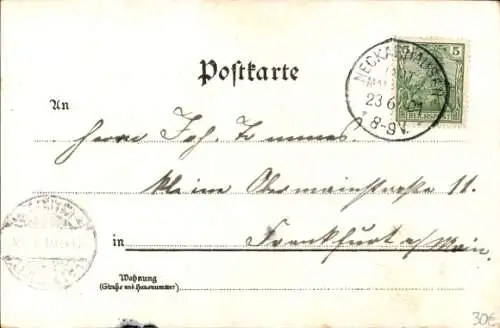 Postkarte
5
REICHSPOST
NECKARHAUSEN
23 6
8-9V.
An
Herrn Joh. Timmes.
kleine Obermainstraße 11.
in Frankfurt a/Main.
Wohnung
(Straße und Hausnummer)
30€